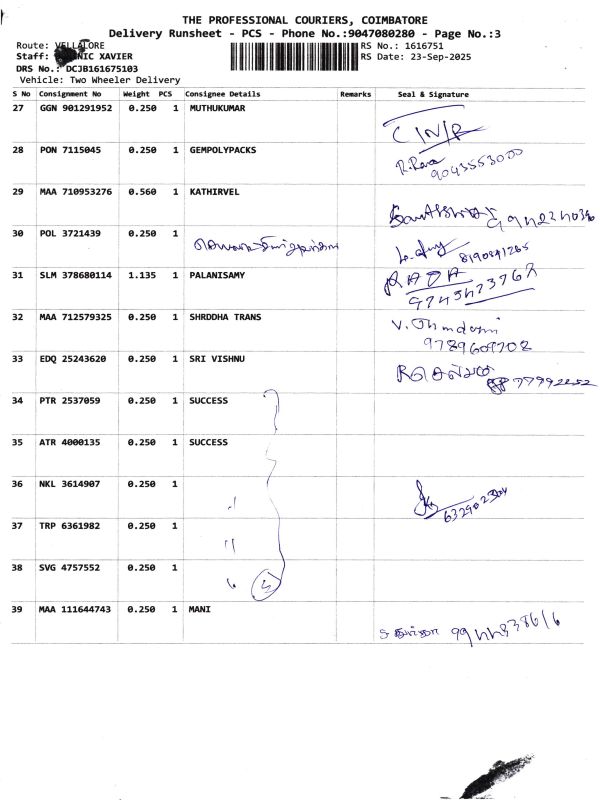 THE PROFESSIONAL COURIERS, COIMBATORE
Delivery Runsheet - PCS - Phone No.:9047080280 - Page No.:3
Route: VELLALORE
RS No.: 1616751
Staff: NIC XAVIER
RS Date: 23-Sep-2025
DRS No.: DCJB161675103
Vehicle: Two Wheeler Delivery
S No Consignment No Weight PCS Consignee Details Remarks Seal & Signature
27 GGN 901291952 0.250 1 MUTHUKUMAR
C/N/R
28 PON 7115045 0.250 1 GEMPOLYPACKS
9043553000
29 MAA 710953276 0.560 1 KATHIRVEL
30 POL 3721439 0.250 1
8190841265
31 SLM 378680114 1.135 1 PALANISAMY
32 MAA 712579325 0.250 1 SHRDDHA TRANS
33 EDQ 25243620 0.250 1 SRI VISHNU
34 PTR 2537059 0.250 1 SUCCESS
35 ATR 4000135 0.250 1 SUCCESS
36 NKL 3614907 0.250 1
37 TRP 6361982 0.250 1
38 SVG 4757552 0.250 1
5
39 MAA 111644743 0.250 1 MANI